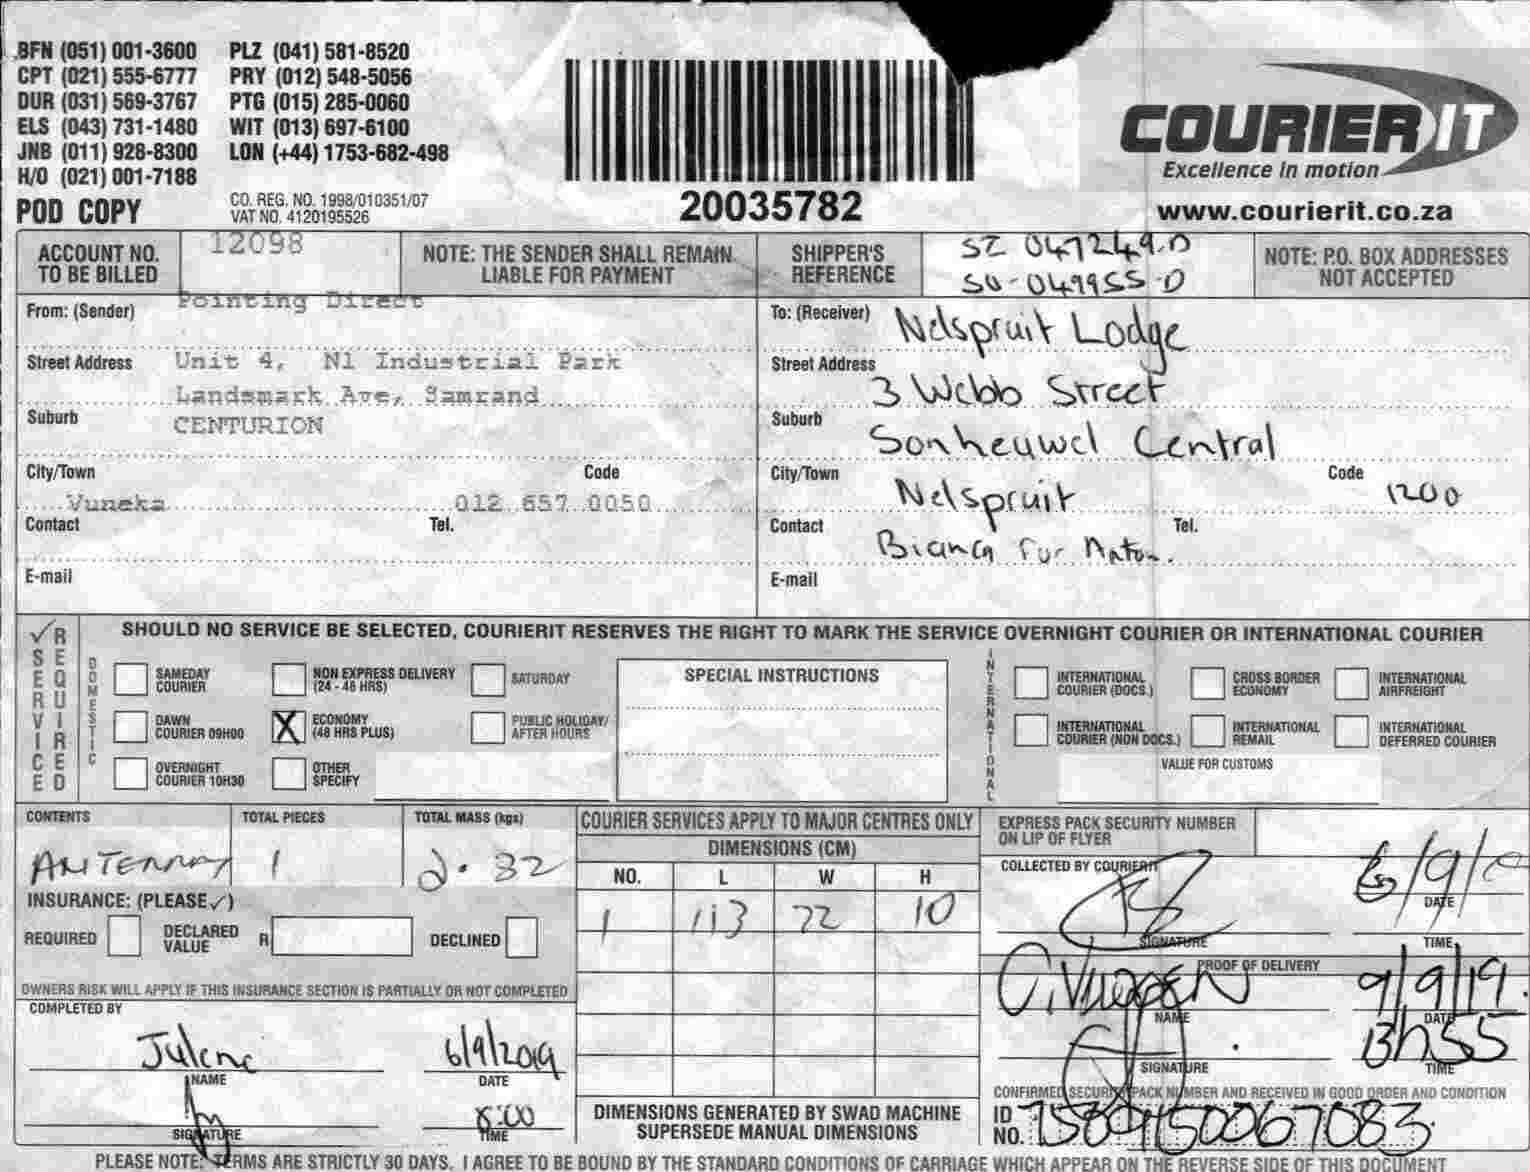 BFN (051) 001-3600 PLZ (041) 581-8520
CPT (021) 555-6777 PRY (012) 548-5056
DUR (031) 569-3767 PTG (015) 285-0060
ELS (043) 731-1480 WIT (013) 697-6100
JNB (011) 928-8300 LON (+44) 1753-682-498
H/O (021) 001-7188
POD COPY
CO. REG. NO. 1998/010351/07
VAT NO. 4120195526
20035782
COURIER IT
Excellence in motion
www.courierit.co.za
ACCOUNT NO. TO BE BILLED 12098
NOTE: THE SENDER SHALL REMAIN LIABLE FOR PAYMENT
SHIPPER'S REFERENCE SI 047249.D
SU-049955-D
NOTE: P.O. BOX ADDRESSES NOT ACCEPTED
From: (Sender) Pointing Direct
Street Address Unit 4, N1 Industrial Park
Landsmark Ave, Samrand
Suburb CENTURION
City/Town Code
Vuneka 012 657 0050
Contact Tel.
E-mail
To: (Receiver) Nelspruit Lodge
Street Address
3 Webb Street
Suburb
Sonheuwel Central
City/Town Nelspruit Code 1200
Contact Bianca for Anton. Tel.
E-mail
SERVICE REQUIRED
SHOULD NO SERVICE BE SELECTED, COURIERIT RESERVES THE RIGHT TO MARK THE SERVICE OVERNIGHT COURIER OR INTERNATIONAL COURIER
DOMESTIC
SAMEDAY COURIER
NON EXPRESS DELIVERY (24 - 48 HRS)
SATURDAY
DAWN COURIER 09H00
X ECONOMY (48 HRS PLUS)
PUBLIC HOLIDAY/ AFTER HOURS
OVERNIGHT COURIER 10H30
OTHER SPECIFY
SPECIAL INSTRUCTIONS
INTERNATIONAL
INTERNATIONAL COURIER (DOCS.)
CROSS BORDER ECONOMY
INTERNATIONAL AIRFREIGHT
INTERNATIONAL COURIER (NON DOCS.)
INTERNATIONAL REMAIL
INTERNATIONAL DEFERRED COURIER
VALUE FOR CUSTOMS
CONTENTS TOTAL PIECES TOTAL MASS (kgs)
ANTENNA 1 2.32
INSURANCE: (PLEASE ✓)
REQUIRED DECLARED VALUE R DECLINED
OWNERS RISK WILL APPLY IF THIS INSURANCE SECTION IS PARTIALLY OR NOT COMPLETED
COMPLETED BY
Julene 6/9/2019
NAME DATE
8:00
SIGNATURE TIME
COURIER SERVICES APPLY TO MAJOR CENTRES ONLY
DIMENSIONS (CM)
NO. L W H
1 113 22 10
DIMENSIONS GENERATED BY SWAD MACHINE SUPERSEDE MANUAL DIMENSIONS
EXPRESS PACK SECURITY NUMBER ON LIP OF FLYER
COLLECTED BY COURIERIT
DATE
SIGNATURE TIME
PROOF OF DELIVERY
9/9/19
NAME DATE
13h55
SIGNATURE TIME
CONFIRMED SECURITY PACK NUMBER AND RECEIVED IN GOOD ORDER AND CONDITION
ID NO.
PLEASE NOTE: TERMS ARE STRICTLY 30 DAYS. I AGREE TO BE BOUND BY THE STANDARD CONDITIONS OF CARRIAGE WHICH APPEAR ON THE REVERSE SIDE OF THIS DOCUMENT